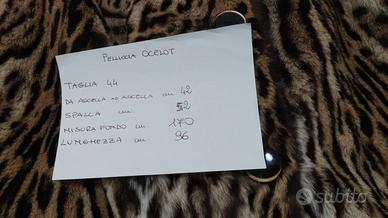 PELLICCIA OCELOT
TAGLIA 44
DA ASCELLA AD ASCELLA cm 42
SPALLA cm 52
MISURA FONDO cm 170
LUNGHEZZA cm 96
subito